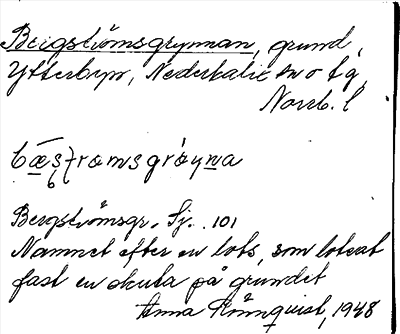 Bergströmsgrynnan, grund,
Ytterbyn, Nederkalix sn o tg
Norrb. l
Bergströmsgr. Sj. 101
Namnet efter en lots, som lotsat
fast en skuta på grundet
Anna Rönnquist, 1948